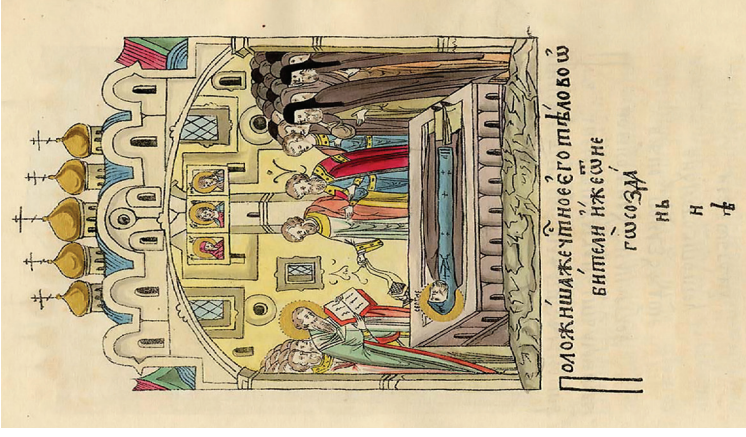 Положиша же чтное его тѣло во ѡ
бители иже ѿ не
гѡ созда
нь
н
ѣ